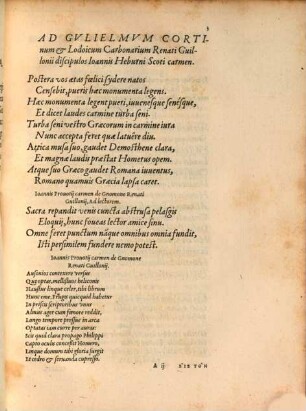 AD GVLIELMVM CORTI
num & Lodoicum Carbonarium Renati Guil-
lonii discipulos Ioannis Heburni Scoti carmen.
Postera vos ætas fœlici sydere natos
Censebit, pueris hæc monumenta legens.
Hæc monumenta legent pueri, iuuenesque senésque,
Et dicet laudes carmine turba seni.
Turba seni vestro Græcorum in carmine iura
Nunc accepta feret quæ latuêre diu.
Attica musa suo, gaudet Demosthene clara,
Et magnæ laudis præstat Homerus opem.
Atque suo Græco gaudet Romana iuuentus,
Romano quamuis Græcia lapsa caret.
Ioannis carmen de Gnomone Renati
Guillonij, Ad lectorem.
Sacra repandit venis cuncta abstrusa pelasgis
Eloquij, hunc foueas lector amice sinu.
Omne feret punctum nâque omnibus omnia fundit,
Isti persimilem fundere nemo potest.
Ioannis carmen de Gnomone
Renati Guillonij.
Ausonios contentere versus
Quæ opeat, mellissimos heliconis
Haustus linquat celer, isti librum
Hunc ene, Frugis quicquid habetur
In preses scriptoribus vnus
Almus ager cum fœnore reddit,
Longo tempore pressus in arcto
Optatas tum curre per auras:
Scis quod clara propago Philippi
Capto oculis concessit Homero,
Linque domum tibi gloria surgit
Et cedro & seruanda cupresso.
A ij